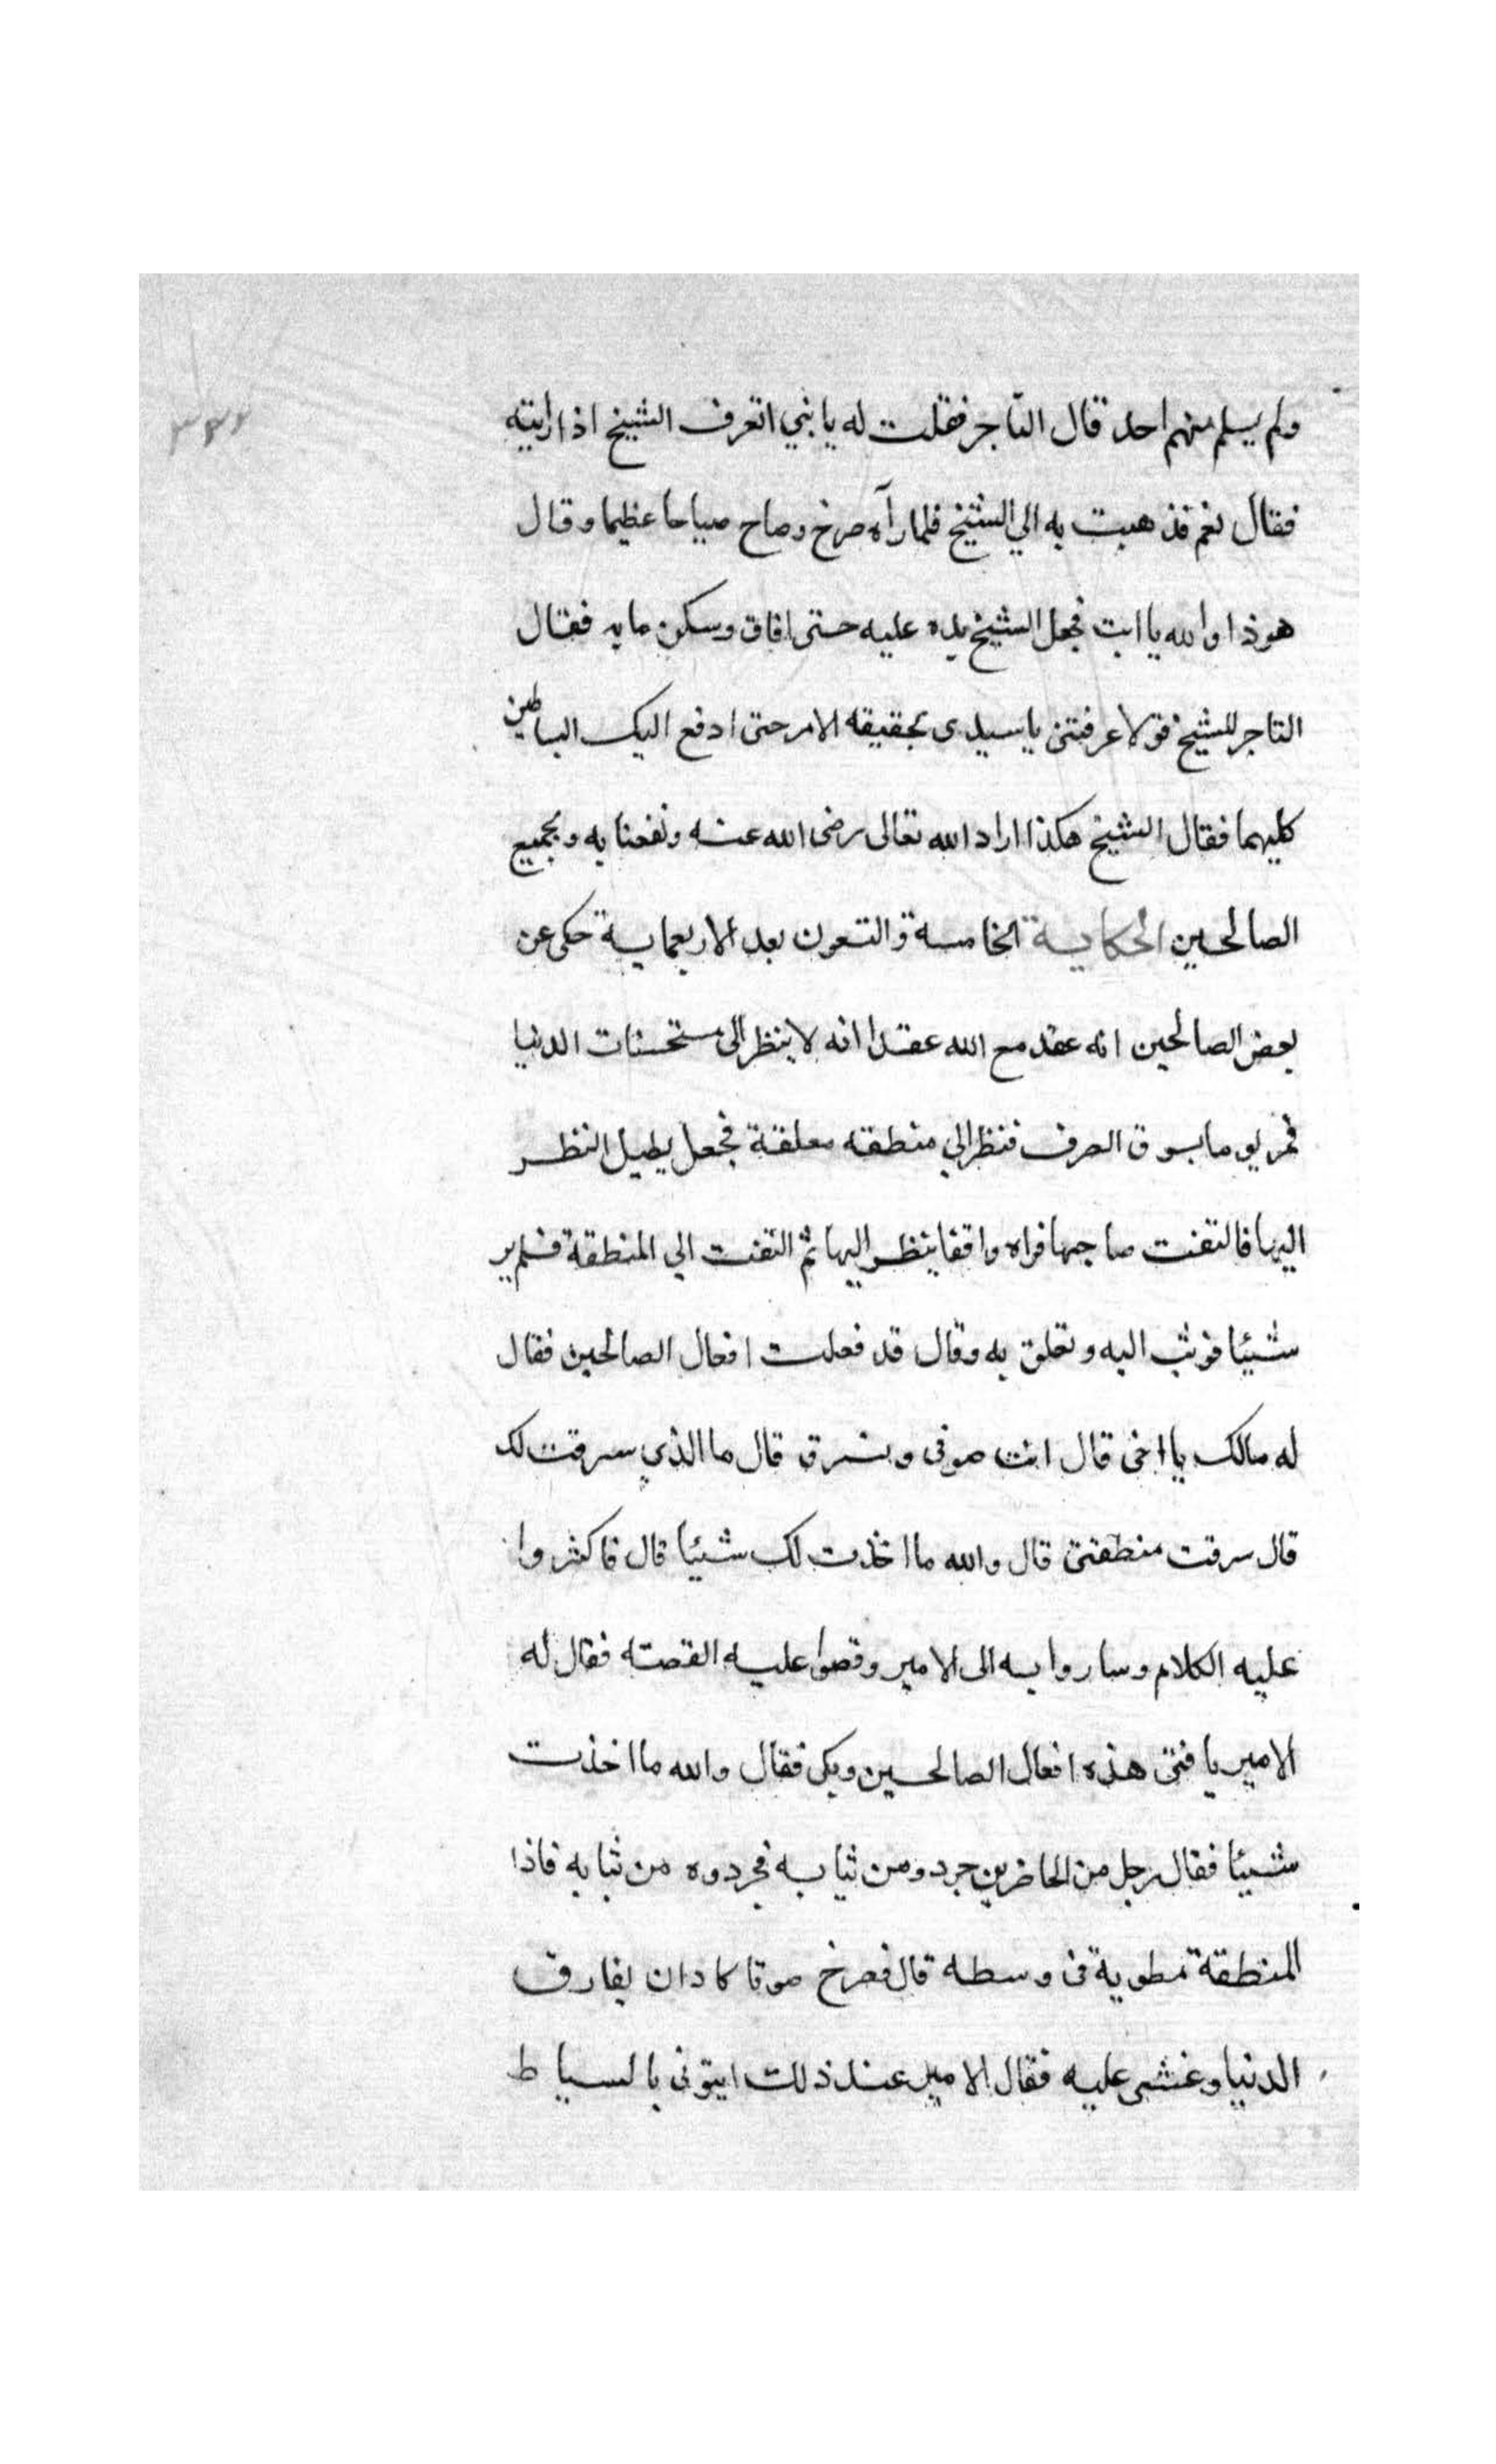 ولم يسلم منهم احد قال التاجر فقلت له يا بني اتعرف الشيخ اذا رايته
فقال نعم فذهبت به الي الشيخ فلما رآه صرخ وصاح صياحا عظيما وقال
هوذا والله يا ابت فجعل الشيخ يده عليه حتى افاق وسكن ما به فقال
التاجر للشيخ فولا عرفتنى يا سيدى بحقيقه الامر حتى ادفع اليك البساطين
كليهما فقال الشيخ هكذا اراد الله تعالى رضى الله عنه ونفعنا به وبجميع
الصالحين الحكاية الخامسة والتسعون بعد الاربعماية حكى عن
بعض الصالحين انه عقد مع الله عقدا انه لا ينظر الى مستحسنات الدنيا
فمر يوما بسوق الصرف فنظر الي منطقه معلقة فجعل يطيل النظر
اليها فالتفت صاحبها فراه واقفا ينظر اليها ثم التفت الي المنطقة فلم ير
شيئا فوثب اليه وتعلق به وقال قد فعلت افعال الصالحين فقال
له مالك يا اخى قال انت صوفى وتسرق قال ما الذي سرقت لك
قال سرقت منطقتى قال والله ما اخذت لك شيئا قال فاكثروا
عليه الكلام وساروا به الى الامير وقصوا عليه القصته فقال له
الامير يا فتى هذه افعال الصالحين وبكى فقال والله ما اخذت
شيئا فقال رجل من الحاضرين جردو من ثيابه فجردوه من ثيابه فاذا
المنطقة مطوية فى وسطه قال فصرخ صوتا كاد ان يفارق
الدنيا وغشى عليه فقال الامير عند ذلك ايتونى بالسياط